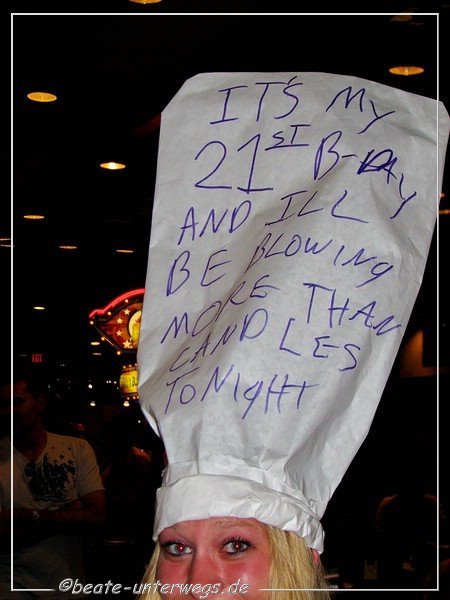 IT'S MY
21ST B-DAY
AND ILL
BE BLOWING
MORE THAN
CANDLES
TONIGHT
©beate-unterwegs.de